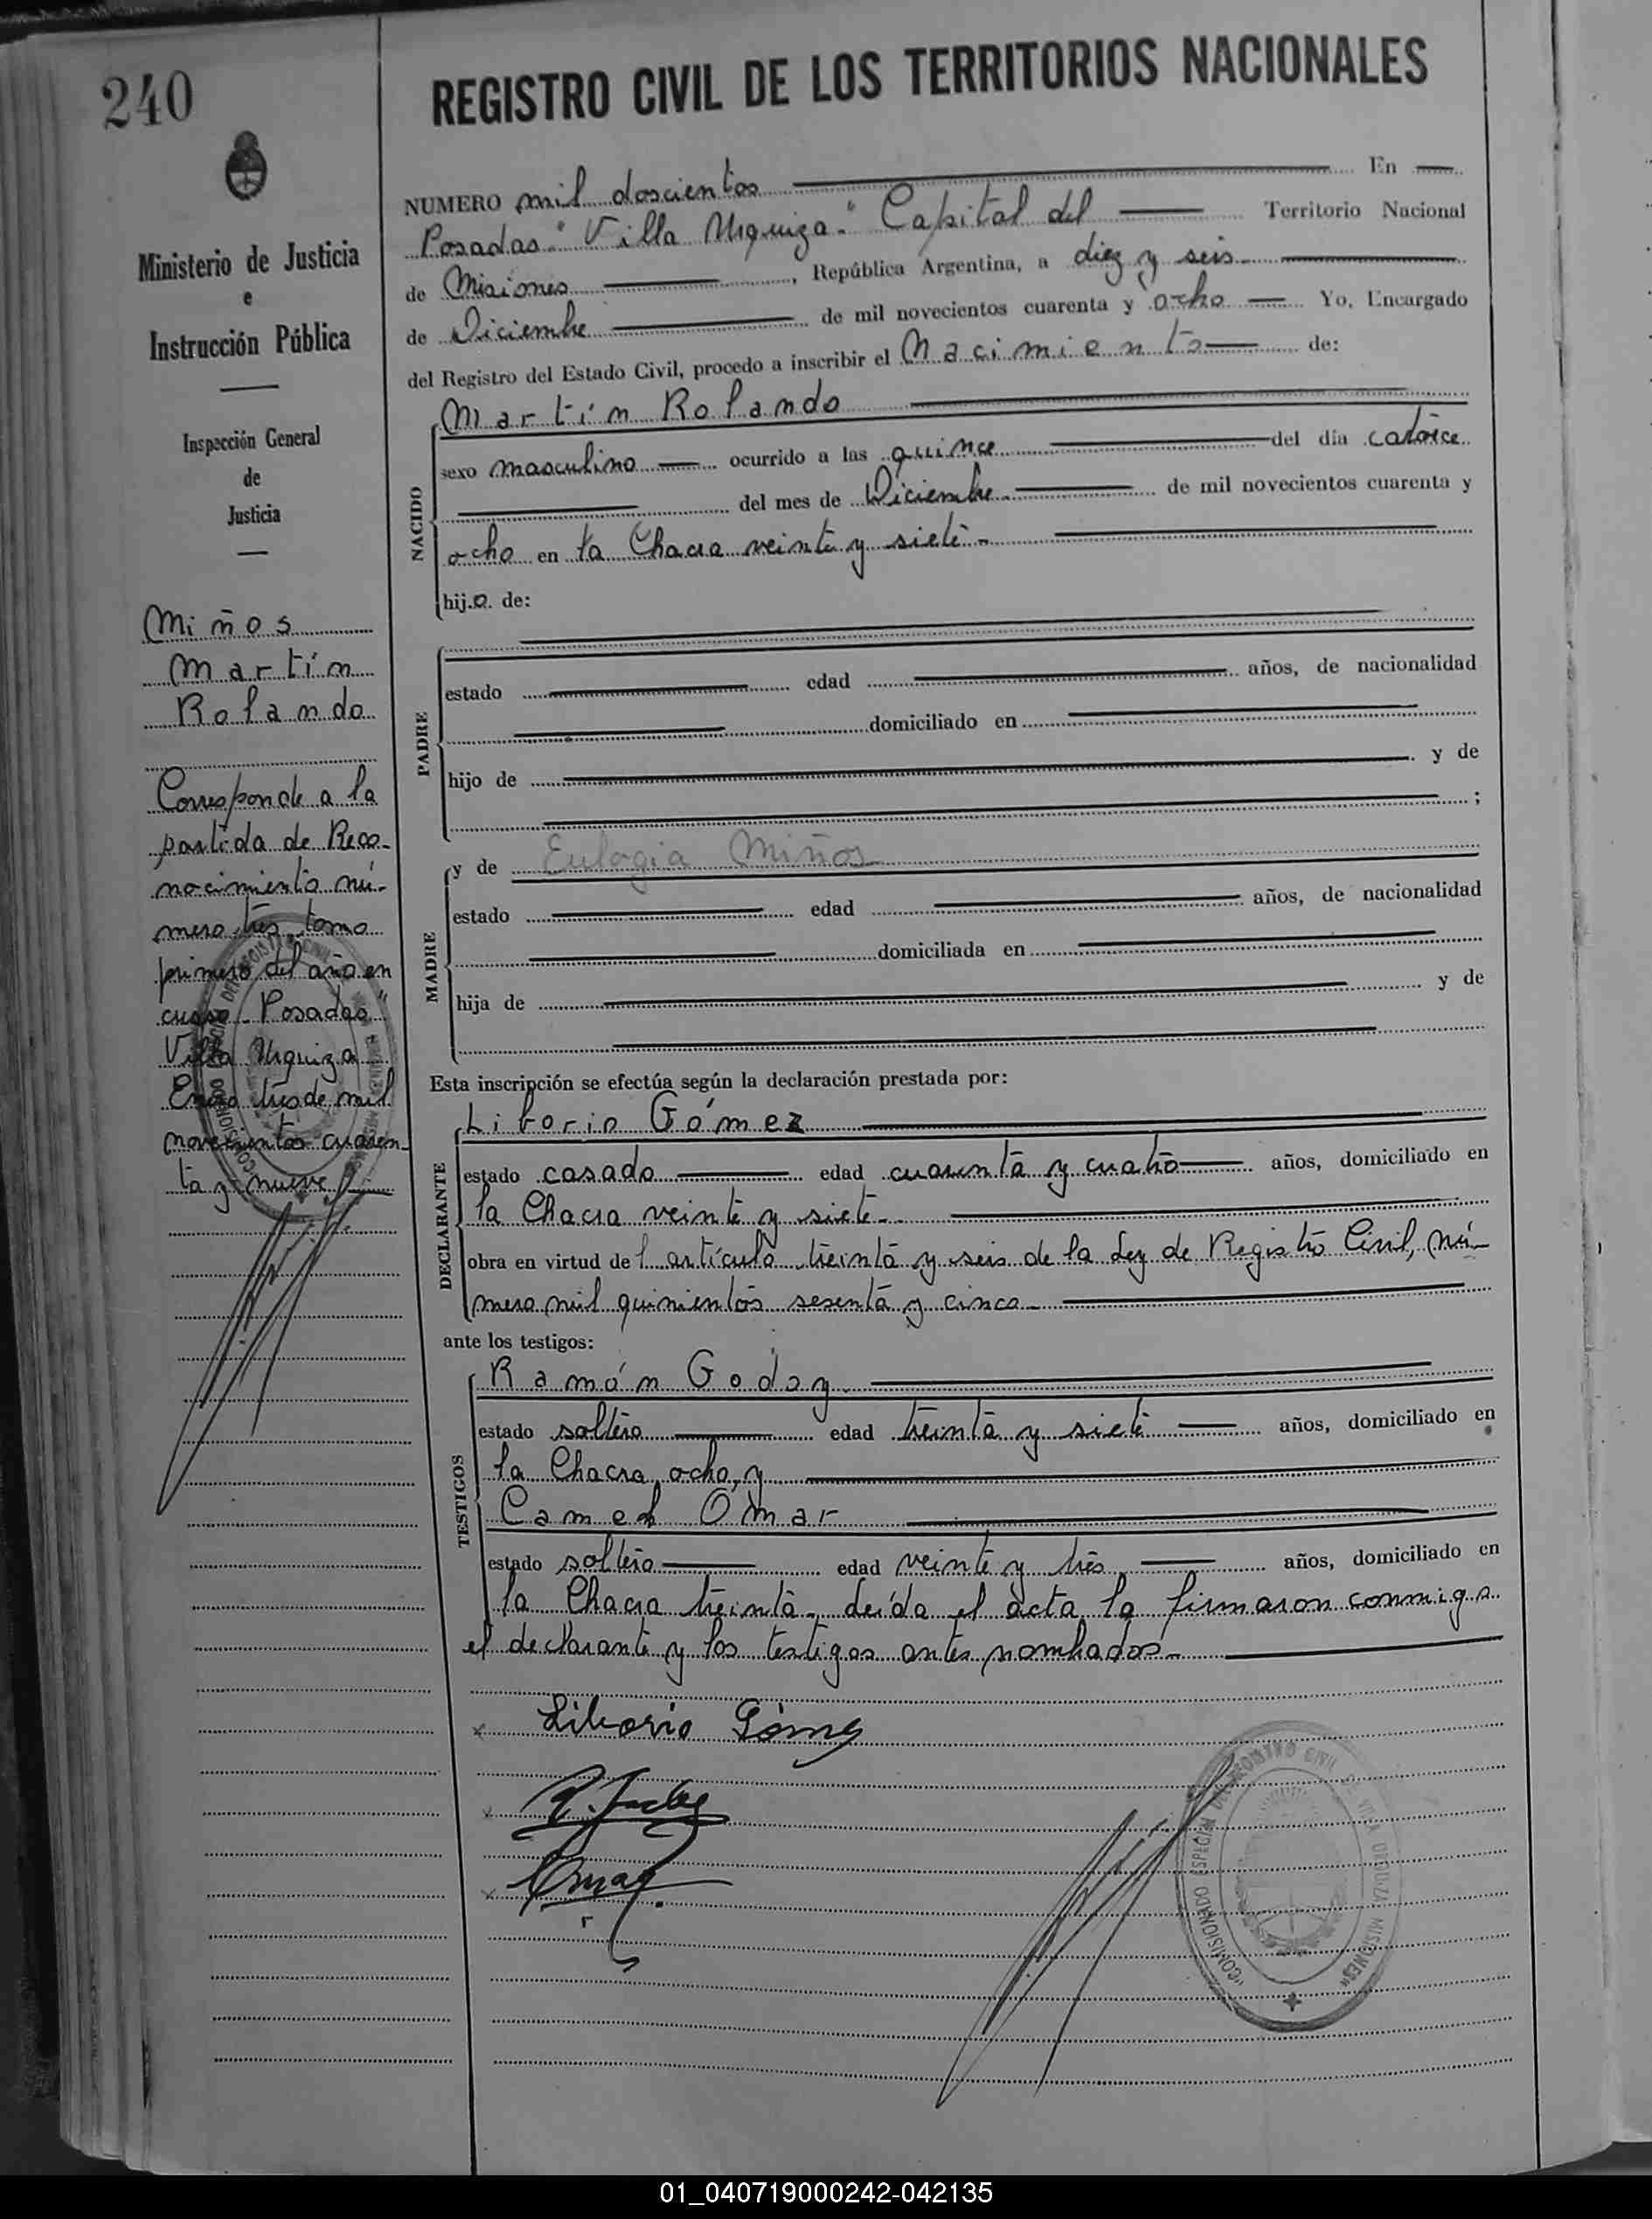 240
REGISTRO CIVIL DE LOS TERRITORIOS NACIONALES
Ministerio de Justicia
e
Instrucción Pública
Inspección General
de
Justicia
Miños
Martín
Rolando
Corresponde a la
partida de Reco-
nocimiento nú-
mero tres, tomo
primero del año en
curso. Posadas "
Villa Urquiza
Enero tres de mil
novecientos cuaren-
ta y nueve
NUMERO mil doscientos En
Posadas "Villa Urquiza" Capital del Territorio Nacional
de Misiones, República Argentina, a diez y seis
de Diciembre de mil novecientos cuarenta y ocho Yo, Encargado
del Registro del Estado Civil, procedo a inscribir el Nacimiento de:
NACIDO
Martín Rolando
sexo masculino ocurrido a las quince del día catorce
del mes de Diciembre de mil novecientos cuarenta y
ocho en la Chacra veinte y siete.-
hijo de:
PADRE
estado edad años, de nacionalidad
domiciliado en
hijo de y de
;
MADRE
y de Eulogia Miños
estado edad años, de nacionalidad
domiciliada en
hija de y de
Esta inscripción se efectúa según la declaración prestada por:
DECLARANTE
Liborio Gómez
estado casado edad cuarenta y cuatro años, domiciliado en
la Chacra veinte y siete.-
obra en virtud del artículo treinta y seis de la Ley de Registro Civil, nú-
mero mil quinientos sesenta y cinco.-
ante los testigos:
TESTIGOS
Ramón Godoy
estado soltero edad treinta y siete años, domiciliado en
la Chacra ocho, y
Camel Omar
estado soltero edad veinte y tres años, domiciliado en
la Chacra treinta. Leída el acta, la firmaron conmigo
el declarante y los testigos antes nombrados.-
x Liborio Gómez
x
x Omar
"COMISIONADO ESPECIAL DEL REGISTRO CIVIL VILLA URQUIZA MISIONES"
01_040719000242-042135